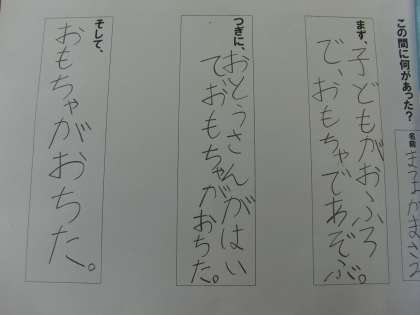 この間に何があった?
名前
まず、
子どもがおふろ
で、おもちゃであそぶ。
つぎに、
おとうさんがはいっ
ておもちゃがおちた。
そして、
おもちゃがおちた。